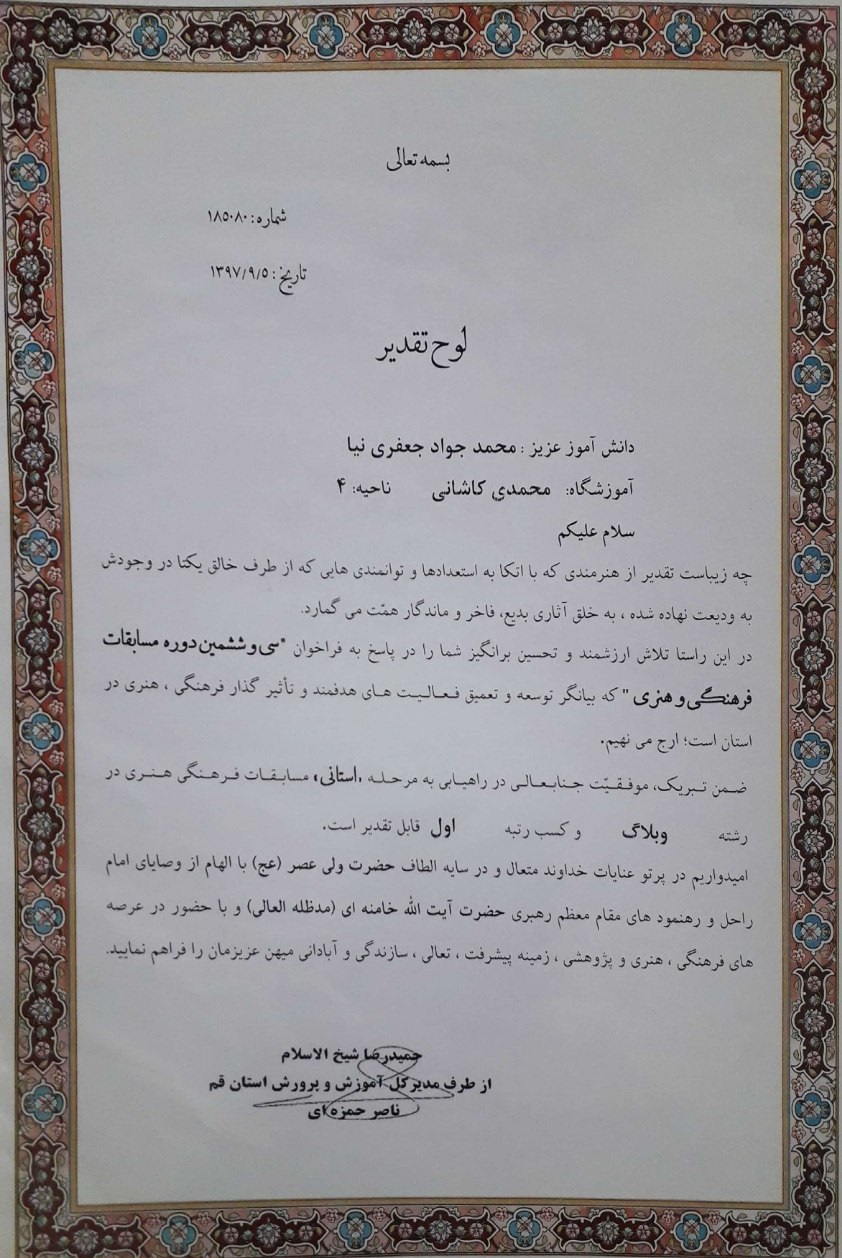 بسمه تعالی
شماره: ۱۸۵۰۸۰
تاریخ: ۱۳۹۷/۹/۵
لوح تقدیر
دانش آموز عزیز : محمد جواد جعفری نیا
آموزشگاه: محمدی کاشانی ناحیه: ۴
سلام علیکم
چه زیباست تقدیر از هنرمندی که با اتکا به استعدادها و توانمندی هایی که از طرف خالق یکتا در وجودش
به ودیعت نهاده شده ، به خلق آثاری بدیع، فاخر و ماندگار همّت می گمارد.
در این راستا تلاش ارزشمند و تحسین برانگیز شما را در پاسخ به فراخوان "سی و ششمین دوره مسابقات
فرهنگی و هنری " که بیانگر توسعه و تعمیق فعالیت های هدفمند و تأثیر گذار فرهنگی ، هنری در
استان است؛ ارج می نهیم.
ضمن تبریک، موفقیّت جنابعالی در راهیابی به مرحله «استانی» مسابقات فرهنگی هنری در
رشته وبلاگ و کسب رتبه اول قابل تقدیر است.
امیدواریم در پرتو عنایات خداوند متعال و در سایه الطاف حضرت ولی عصر (عج) با الهام از وصایای امام
راحل و رهنمود های مقام معظم رهبری حضرت آیت الله خامنه ای (مدظله العالی) و با حضور در عرصه
های فرهنگی ، هنری و پژوهشی ، زمینه پیشرفت ، تعالی ، سازندگی و آبادانی میهن عزیزمان را فراهم نمایید.
حمیدرضا شیخ الاسلام
از طرف مدیرکل آموزش و پرورش استان قم
ناصر حمزه ای